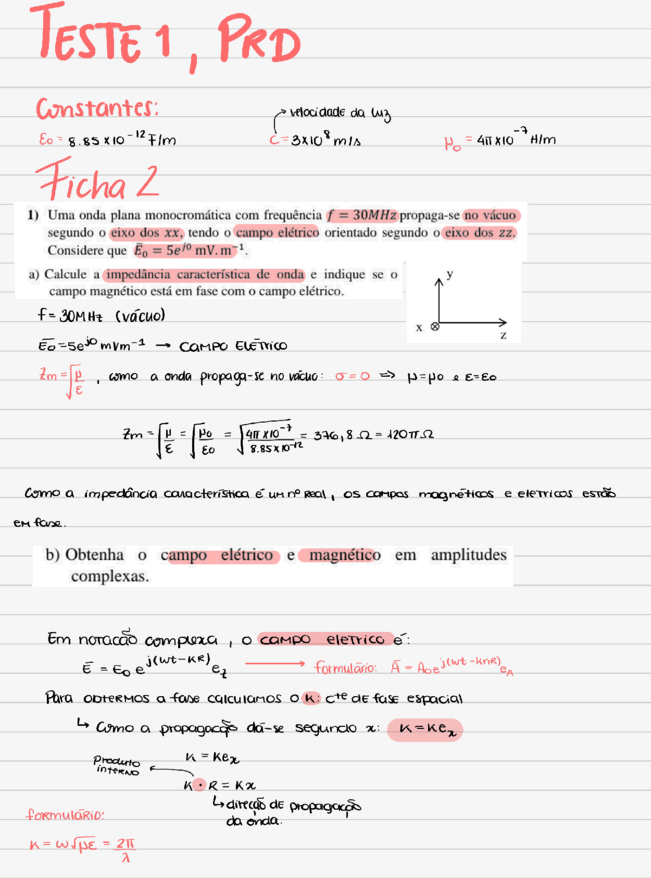 TESTE 1, PRD
Constantes:
→ velocidade da luz
ε₀ = 8.85 × 10⁻¹² F/m c = 3×10⁸ m/s μ₀ = 4π × 10⁻⁷ H/m
Ficha 2
1) Uma onda plana monocromática com frequência f = 30MHz propaga-se no vácuo
segundo o eixo dos xx, tendo o campo elétrico orientado segundo o eixo dos zz.
Considere que Ē₀ = 5e^{j0} mV.m⁻¹.
a) Calcule a impedância característica de onda e indique se o
campo magnético está em fase com o campo elétrico.
y
x ⊗ z
f = 30MHz (vácuo)
Ē₀ = 5e^{j0} mVm⁻¹ → CAMPO ELÉTRICO
Zm = √(μ/ε) , como a onda propaga-se no vácuo: σ = 0 ⇒ μ = μ₀ e ε = ε₀
Zm = √(μ/ε) = √(μ₀/ε₀) = √(4π × 10⁻⁷/8.85 × 10⁻¹²) = 376,8 Ω = 120π Ω
Como a impedância característica é um nº Real, os campos magnéticos e eletricos estão
em fase.
b) Obtenha o campo elétrico e magnético em amplitudes
complexas.
Em notação complexa, o campo eletrico é:
Ē = E₀ e^{j(wt-KR)} e_z → formulário: Ā = A₀e^{j(wt-KnR)} e_A
Para obtermos a fase calculamos o K: cᵗᵉ de fase espacial
↳ Como a propagação dá-se segundo x: K = Ke_x
K = Ke_x
Produto
interno
K · R = Kx
↳ direção de propagação
da onda.
formulário:
K = ω√(με) = 2π/λ